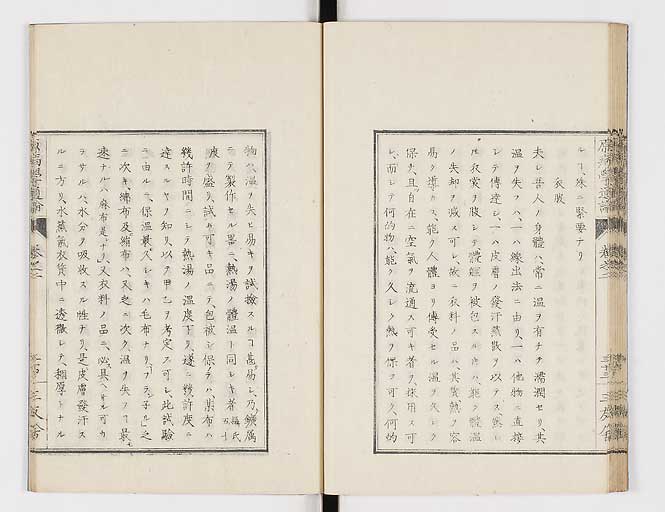 ルコ、殊ニ緊要ナリ
衣服
夫レ吾人ノ身體ハ、常ニ温ヲ有チテ濡潤セリ、其
温ヲ失フハ、一ハ線出法ニ由リ、一ハ他物ニ直接
シテ傳達シ、一ハ皮膚ノ發汗蒸散ヲ以テス、然
ルニ衣裳ヲ服シテ體軀ヲ被包スルトキハ、能ク體温
ノ失却ヲ減ス可シ、故ニ衣料ノ品ハ、其質熱ヲ容
易ク導カス、能ク人體ヨリ傳受セル温ヲ失レク
保チ、且自在ニ空氣ヲ流通ス可キ者ヲ採用ス可
シ、而シテ何的物ハ能ク久シク熱ヲ保ツ可ク、何的
物ハ温ヲ失ヒ易キヲ試撿スルコ甚易シ、乃鑛属
ニテ製作セル器ニ、熱湯ノ體温ト同シキ者
攝氏
五十
度ヲ盛リ、試ム可キ品ニテ包被シ保テハ、某布ハ
幾許時間ニシテ熱湯ノ温度下リ、遂ニ幾許度ニ
達スルヤヲ知リ、以テ甲乙ヲ考定ス可シ、此試驗
ニ由ルニ、保温最久シキハ毛布ナリ、
ニ次キ、綿布及絹布ハ、又之ニ次ク、温ヲ失フコ最
速ナルハ麻布是ナリ、又衣料ノ品ニ必具ヘサル可カ
ラサルハ、水分ヲ吸收スル性ナリ、是皮膚發汗ス
ルニ方リ、水蒸氣衣質中ニ透徹シテ、稠厚トナル